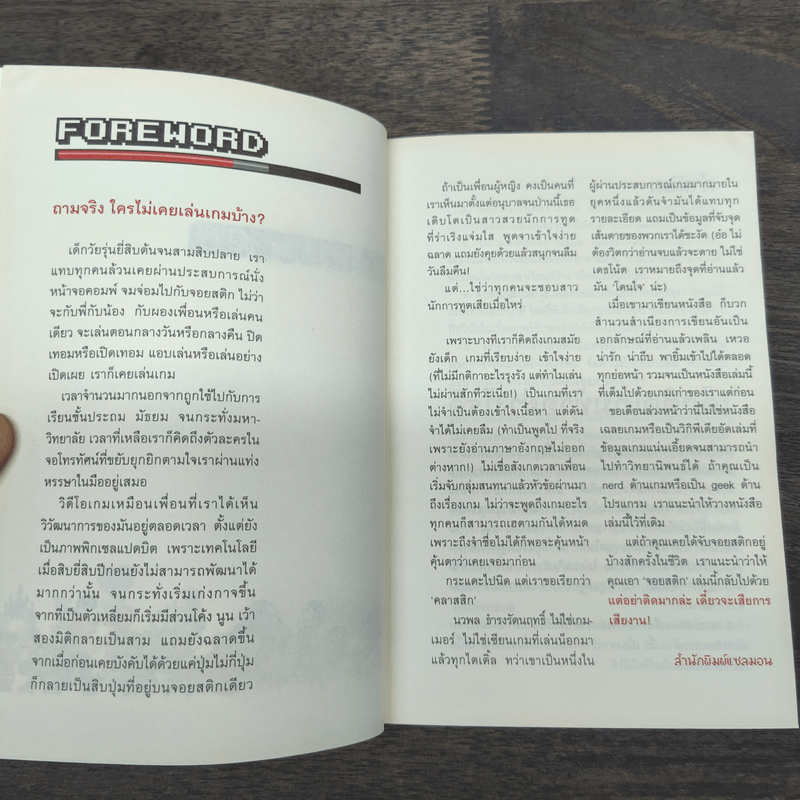 FOREWORD
ถามจริง ใครไม่เคยเล่นเกมบ้าง?
เด็กวัยรุ่นยี่สิบต้นจนสามสิบปลาย เรา
แทบทุกคนล้วนเคยผ่านประสบการณ์นั่ง
หน้าจอคอมพ์ จมจ่อมไปกับจอยสติก ไม่ว่า
จะกับพี่กับน้อง กับผองเพื่อนหรือเล่นคน
เดียว จะเล่นตอนกลางวันหรือกลางคืน ปิด
เทอมหรือเปิดเทอม แอบเล่นหรือเล่นอย่าง
เปิดเผย เราก็เคยเล่นเกม
เวลาจำนวนมากนอกจากถูกใช้ไปกับการ
เรียนชั้นประถม มัธยม จนกระทั่งมหา-
วิทยาลัย เวลาที่เหลือเราก็คิดถึงตัวละครใน
จอโทรทัศน์ที่ขยับยุกยิกตามใจเราผ่านแท่ง
หรรษาในมืออยู่เสมอ
วิดีโอเกมเหมือนเพื่อนที่เราได้เห็น
วิวัฒนาการของมันอยู่ตลอดเวลา ตั้งแต่ยัง
เป็นภาพพิกเซลแปดบิต เพราะเทคโนโลยี
เมื่อสิบยี่สิบปีก่อนยังไม่สามารถพัฒนาได้
มากกว่านั้น จนกระทั่งเริ่มเก่งกาจขึ้น
จากที่เป็นตัวเหลี่ยมก็เริ่มมีส่วนโค้ง นูน เว้า
สองมิติกลายเป็นสาม แถมยังฉลาดขึ้น
จากเมื่อก่อนเคยบังคับได้ด้วยแค่ปุ่มไม่กี่ปุ่ม
ก็กลายเป็นสิบปุ่มที่อยู่บนจอยสติกเดียว
ถ้าเป็นเพื่อนผู้หญิง คงเป็นคนที่
เราเห็นมาตั้งแต่อนุบาลจนป่านนี้เธอ
เติบโตเป็นสาวสวยนักการทูต
ที่ร่าเริงแจ่มใส พูดจาเข้าใจง่าย
ฉลาด แถมยังคุยด้วยแล้วสนุกจนลืม
วันลืมคืน!
แต่...ใช่ว่าทุกคนจะชอบสาว
นักการทูตเสียเมื่อไหร่
เพราะบางทีเราก็คิดถึงเกมสมัย
ยังเด็ก เกมที่เรียบง่าย เข้าใจง่าย
(ที่ไม่มีกติกาอะไรรุงรัง แต่ทำไมเล่น
ไม่ผ่านสักทีวะเนี่ย!) เป็นเกมที่เรา
ไม่จำเป็นต้องเข้าใจเนื้อหา แต่ดัน
จำได้ไม่เคยลืม (ทำเป็นพูดไป ที่จริง
เพราะยังอ่านภาษาอังกฤษไม่ออก
ต่างหาก!) ไม่เชื่อสังเกตเวลาเพื่อน
เริ่มจับกลุ่มสนทนาแล้วหัวข้อผ่านมา
ถึงเรื่องเกม ไม่ว่าจะพูดถึงเกมอะไร
ทุกคนก็สามารถเฮตามกันได้หมด
เพราะถึงจำชื่อไม่ได้ก็พอจะคุ้นหน้า
คุ้นตาว่าเคยเจอมาก่อน
กระแดะไปนิด แต่เราขอเรียกว่า
'คลาสสิก'
นวพล ธำรงรัตนฤทธิ์ ไม่ใช่เกม-
เมอร์ ไม่ใช่เซียนเกมที่เล่นน็อกมา
แล้วทุกไตเติ้ล ทว่าเขาเป็นหนึ่งใน
ผู้ผ่านประสบการณ์เกมมากมายใน
ยุคหนึ่งแล้วดันจำมันได้แทบทุก
รายละเอียด แถมเป็นข้อมูลที่จับจุด
เส้นตายของพวกเราได้ชะงัด (อ๋อ ไม่
ต้องวิตกว่าอ่านจบแล้วจะตาย ไม่ใช่
เดธโน้ต เราหมายถึงจุดที่อ่านแล้ว
มัน 'โดนใจ' น่ะ)
เมื่อเขามาเขียนหนังสือ ก็บวก
สำนวนสำเนียงการเขียนอันเป็น
เอกลักษณ์ที่อ่านแล้วเพลิน เหวอ
น่ารัก น่าถีบ พายิ้มเข้าไปได้ตลอด
ทุกย่อหน้า รวมจนเป็นหนังสือเล่มนี้
ที่เต็มไปด้วยเกมเก่าของเราแต่ก่อน
ขอเตือนล่วงหน้าว่านี่ไม่ใช่หนังสือ
เฉลยเกมหรือเป็นวิกิพีเดียอัดเล่มที่
ข้อมูลเกมแน่นเอี๊ยดจนสามารถนำ
ไปทำวิทยานิพนธ์ได้ ถ้าคุณเป็น
nerd ด้านเกมหรือเป็น geek ด้าน
โปรแกรม เราแนะนำให้วางหนังสือ
เล่มนี้ไว้ที่เดิม
แต่ถ้าคุณเคยได้จับจอยสติกอยู่
บ้างสักครั้งในชีวิต เราแนะนำว่าให้
คุณเอา 'จอยสติก' เล่มนี้กลับไปด้วย
แต่อย่าติดมากล่ะ เดี๋ยวจะเสียการ
เสียงาน!
สำนักพิมพ์แซลมอน